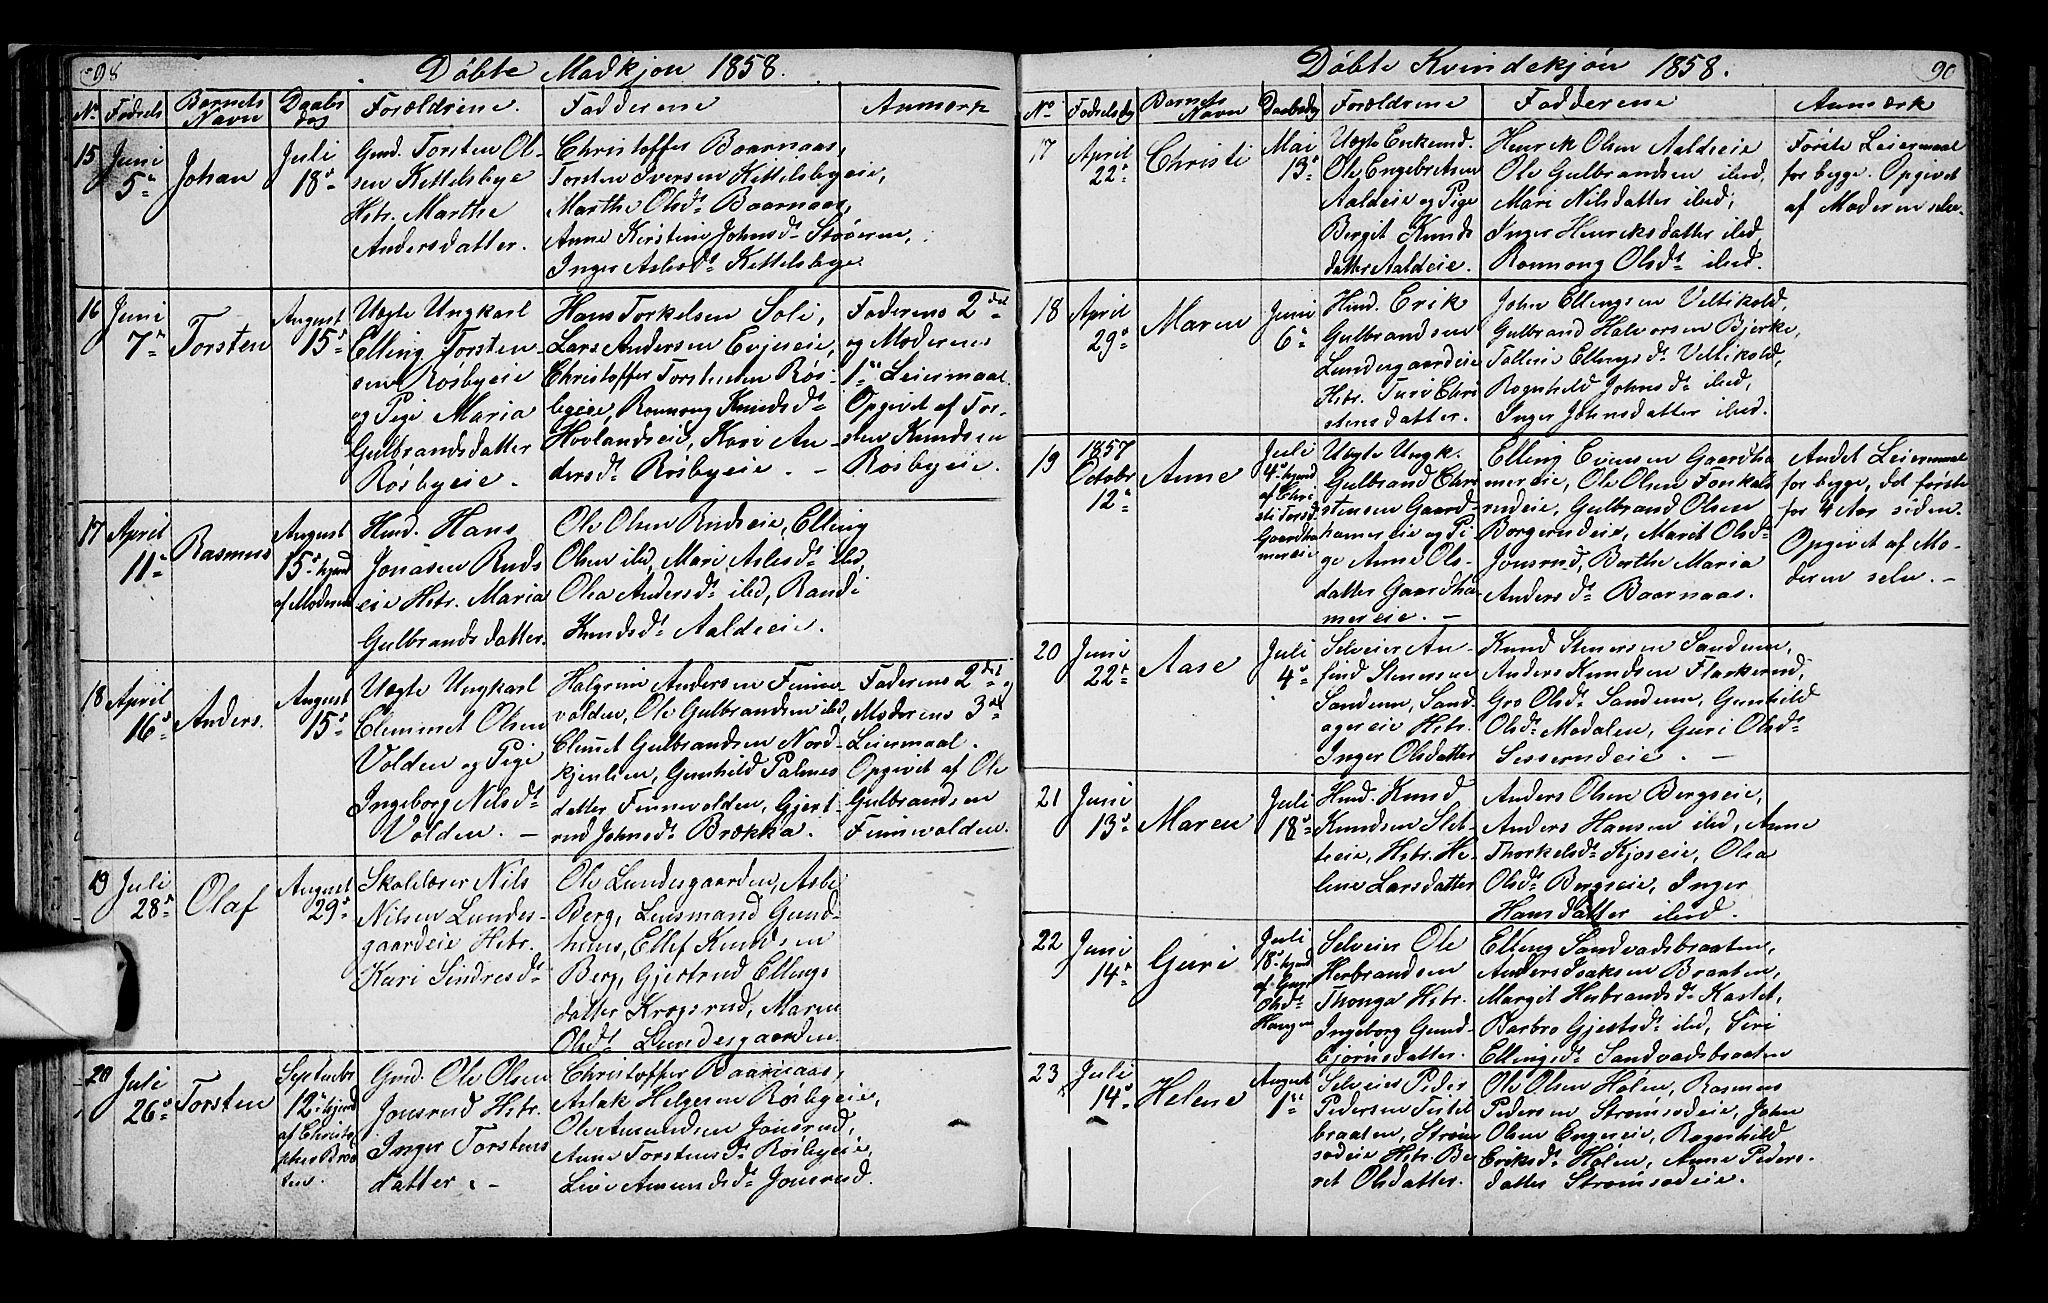 98
Döbte Madkjøn 1858.
No Födsels Barnets Navn Daabs dag Forældrene. Fadderene Anmerk
15 Juni 5te Johan Juli 18de
Gmd. Torsten Ol-
sen Kittelsbye
Hstr. Marthe
Andersdatter.
Christoffer Baarnaas,
Torsten Iversen Kittelsbyeie,
Marthe Olsdt Baarnaas,
Anne Kirstine Johnsdt Støveren,
Inger Aslesdt Kittelsbye.
16 Juni 7de Torsten August 15de
Uægte Ungkarl
Elling Torsten-
sen Rösbyeie
og Pige Maria
Gulbrandsdatter
Rösbyeie.
Hans Torkelsen Soli,
Lars Andersen Evjueie,
Christoffer Torstensen Rös-
byeie, Ronnong Knudsdt
Hovlandseie, Kari An-
dersdt Rösbyeie. –
Faderens 2det
og Moderens
1te Leiermaal.
Opgivet af Tor-
sten Knudsen
Rösbyeie.
17 April 11te Rasmus August 15de hjemd af Moderen
Huud. Hans
Jonasen Ruds
eie Hstr. Maria
Gulbrandsdatter.
Ole Olsen Rudseie, Elling
Olsen ibd, Mari Aslesdt ibd,
Olea Andersdt ibd, Randi
Knudsdt Aaldseie.
18 April 16de Anders. August 15de
Uægte Ungkarl
Clemmet Olsen
Volden og Pige
Ingeborg Nilsdt
Volden. –
Halgrim Andersen Finne-
volden, Ole Gulbrandsen ibd,
Clemet Gulbrandsen Nord-
kjenlien, Gunhild Palmes
datter Finnevolden, Gjert-
rud Johnsdt Brækka.
Faderens 2det og
Moderens 3die
Leiermaal.
Opgivet af Ole
Gulbrandsen
Finnevolden.
19 Juli 28de Olaf August 29de
Skolelærer Nils
Nilsen Lundes-
gaardeie Hstr.
Kari Sindresdt
Ole Lundesgaarden, Asle
Berg, Lensmand Gund-
huus, Ellef Knudsen
Berg, Gjertrud Ellings
datter Krogsrud, Maren
Olsdt Lundesgaarden
20 Juli 26de Torsten Septembr 12te hjemd af Christo-pher Braa-ten.
Gmd. Ole Olsen
Jonsrud Hstr.
Inger Torstens
datter. –
Christoffer Baarnaas,
Aslak Helgesen Rösbyeie,
Ole Amundsen Jonsrud,
Anne Torstensdt Rösbyeie,
Live Amundsdt Jonsrud.
90
Döbte Kvindekjön 1858.
No Födselsdag Barnets Navn Daabsdag Forældrene Fadderene Anmærk
17 April 22de Christi Mai 13de
Uægte Enkemd.
Ole Engebretsen
Aaldeie og Pige
Bergit Knuds
datter Aaldeie.
Henrik Olsen Aaldeie
Ole Gulbrandsen ibid,
Mari Nilsdatter ibid,
Inger Henriksdatter ibid,
Ronnong Olsdt ibid.
Første Leiermaal
for begge. Opgivet
af Moderen selv.
18 April 29de Maren Juni 6te
Huud. Erik
Gulbrandsen
Lundesgaardeie
Hstr. Turi Chri
stensdatter.
John Ellingsen Veltikold,
Gulbrand Halvorsen Bjerke,
Tolleie Ellingsdt Veltikold,
Rognhild Johnsdt ibid,
Inger Johnsdatter ibid.
19 1857 Octobr 12te Anne Juli 4de hjemd af Chri sti Torsd. Gaardha mereie
Uægte Ungk.
Gulbrand Chri
stensen Gaard-
hamereie og Pi
ge Anne Ols-
datter Gaardha
mereie. –
Elling Evensen Gaardha
mereie, Ole Olsen Fonkals
rudeie, Gulbrand Olsen
Borgerudeie, Marit Olsdt
Jonsrud, Berthe Maria
Andersdt Baarnaas.
Andet Leiermaal
for begge, det første
for 4 Aar siden.
Opgivet af Mo-
deren selv. –
20 Juni 22de Aase Juli 4de
Selveier An-
find Stenersen
Sandum, Sand-
agereie Hstr.
Inger Olsdatter
Knud Stenersen Sandum,
Anders Knudsen Flaskerud,
Gro Olsdt Sandum, Gunhild
Olsdt Modalen, Guri Olsdt
Sesserudeie. –
21 Juni 13de Maren Juli 18de
Huud. Knud
Knudsen Slet-
teeie, Hstr. He-
lene Larsdatter
Anders Olsen Bergseie,
Anders Hansen ibid, Anne
Thorkelsdt Kjoseie, Olea
Olsdt Bergseie, Inger
Hansdatter ibid.
22 Juni 14de Guri Juli 18de hjemd af Guri Olsdt Haugen
Selveier Ole
Herbrandsen
Thonga Hstr.
Ingeborg Gund-
bjørnsdatter.
Elling Sandvadsbraaten,
Anders Isaksen Braaten,
Margit Herbrandsdt Kastet,
Barbro Gjestsdt ibid, Siri
Ellingsdt Sandvadsbraaten
23 Juli 14de Helene August 1te
Selveier Peder
Pedersen Tistel
braaten, Strøm
södeie Hstr. Be
ret Olsdatter.
Ole Olsen Holen, Rasmus
Pedersen Strømsodeie, John
Olsen Engereie, Rognhild
Eriksdt Holen, Anne Peders-
datter Strømsodeie.